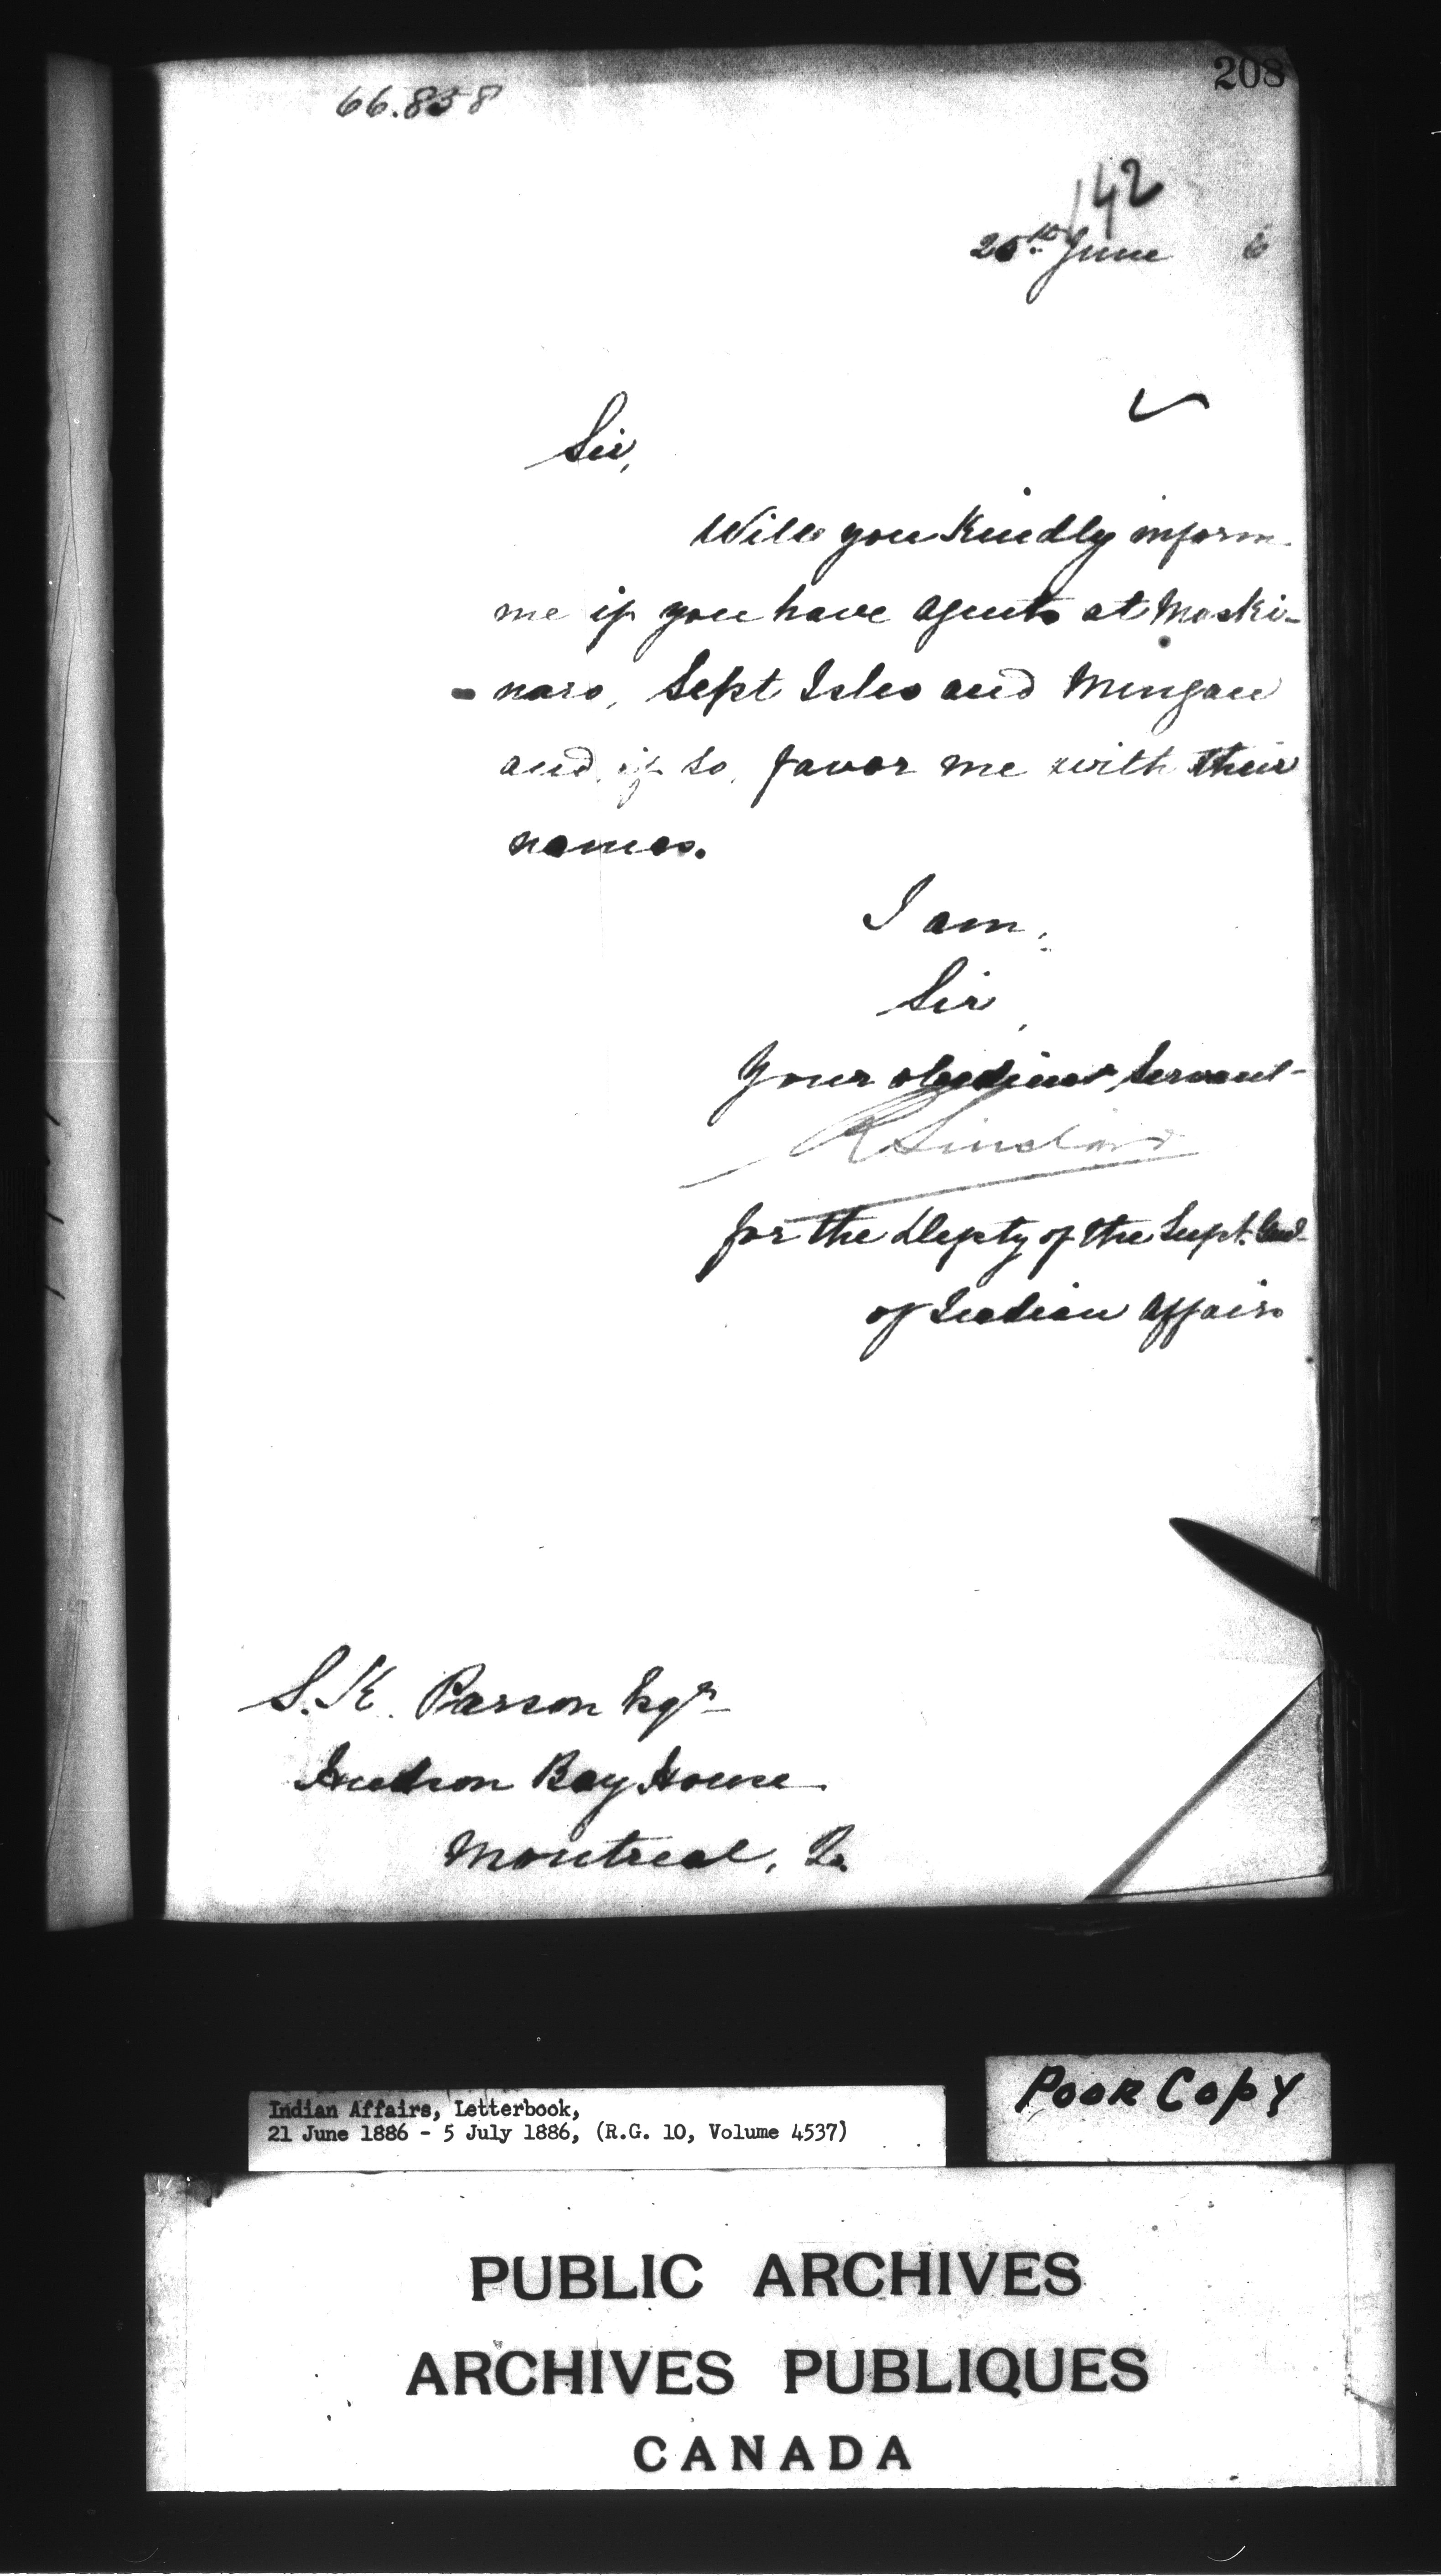 208
66.858
142
25th June 6
Sir,
Will you Kindly inform
me if you have agents at Maski-
- naro, Sept Isles and Mingan
and, if so, favor me with their
names.
I am,
Sir,
Your obedient Servant
R Sinclair
for the Depty of the Supt. Genl
of Indian Affairs
S. K. Parson Esqr
Hudson Bay House
Montreal, Q.
Poor Copy
Indian Affairs, Letterbook,
21 June 1886 - 5 July 1886, (R.G. 10, Volume 4537)
PUBLIC ARCHIVES
ARCHIVES PUBLIQUES
CANADA